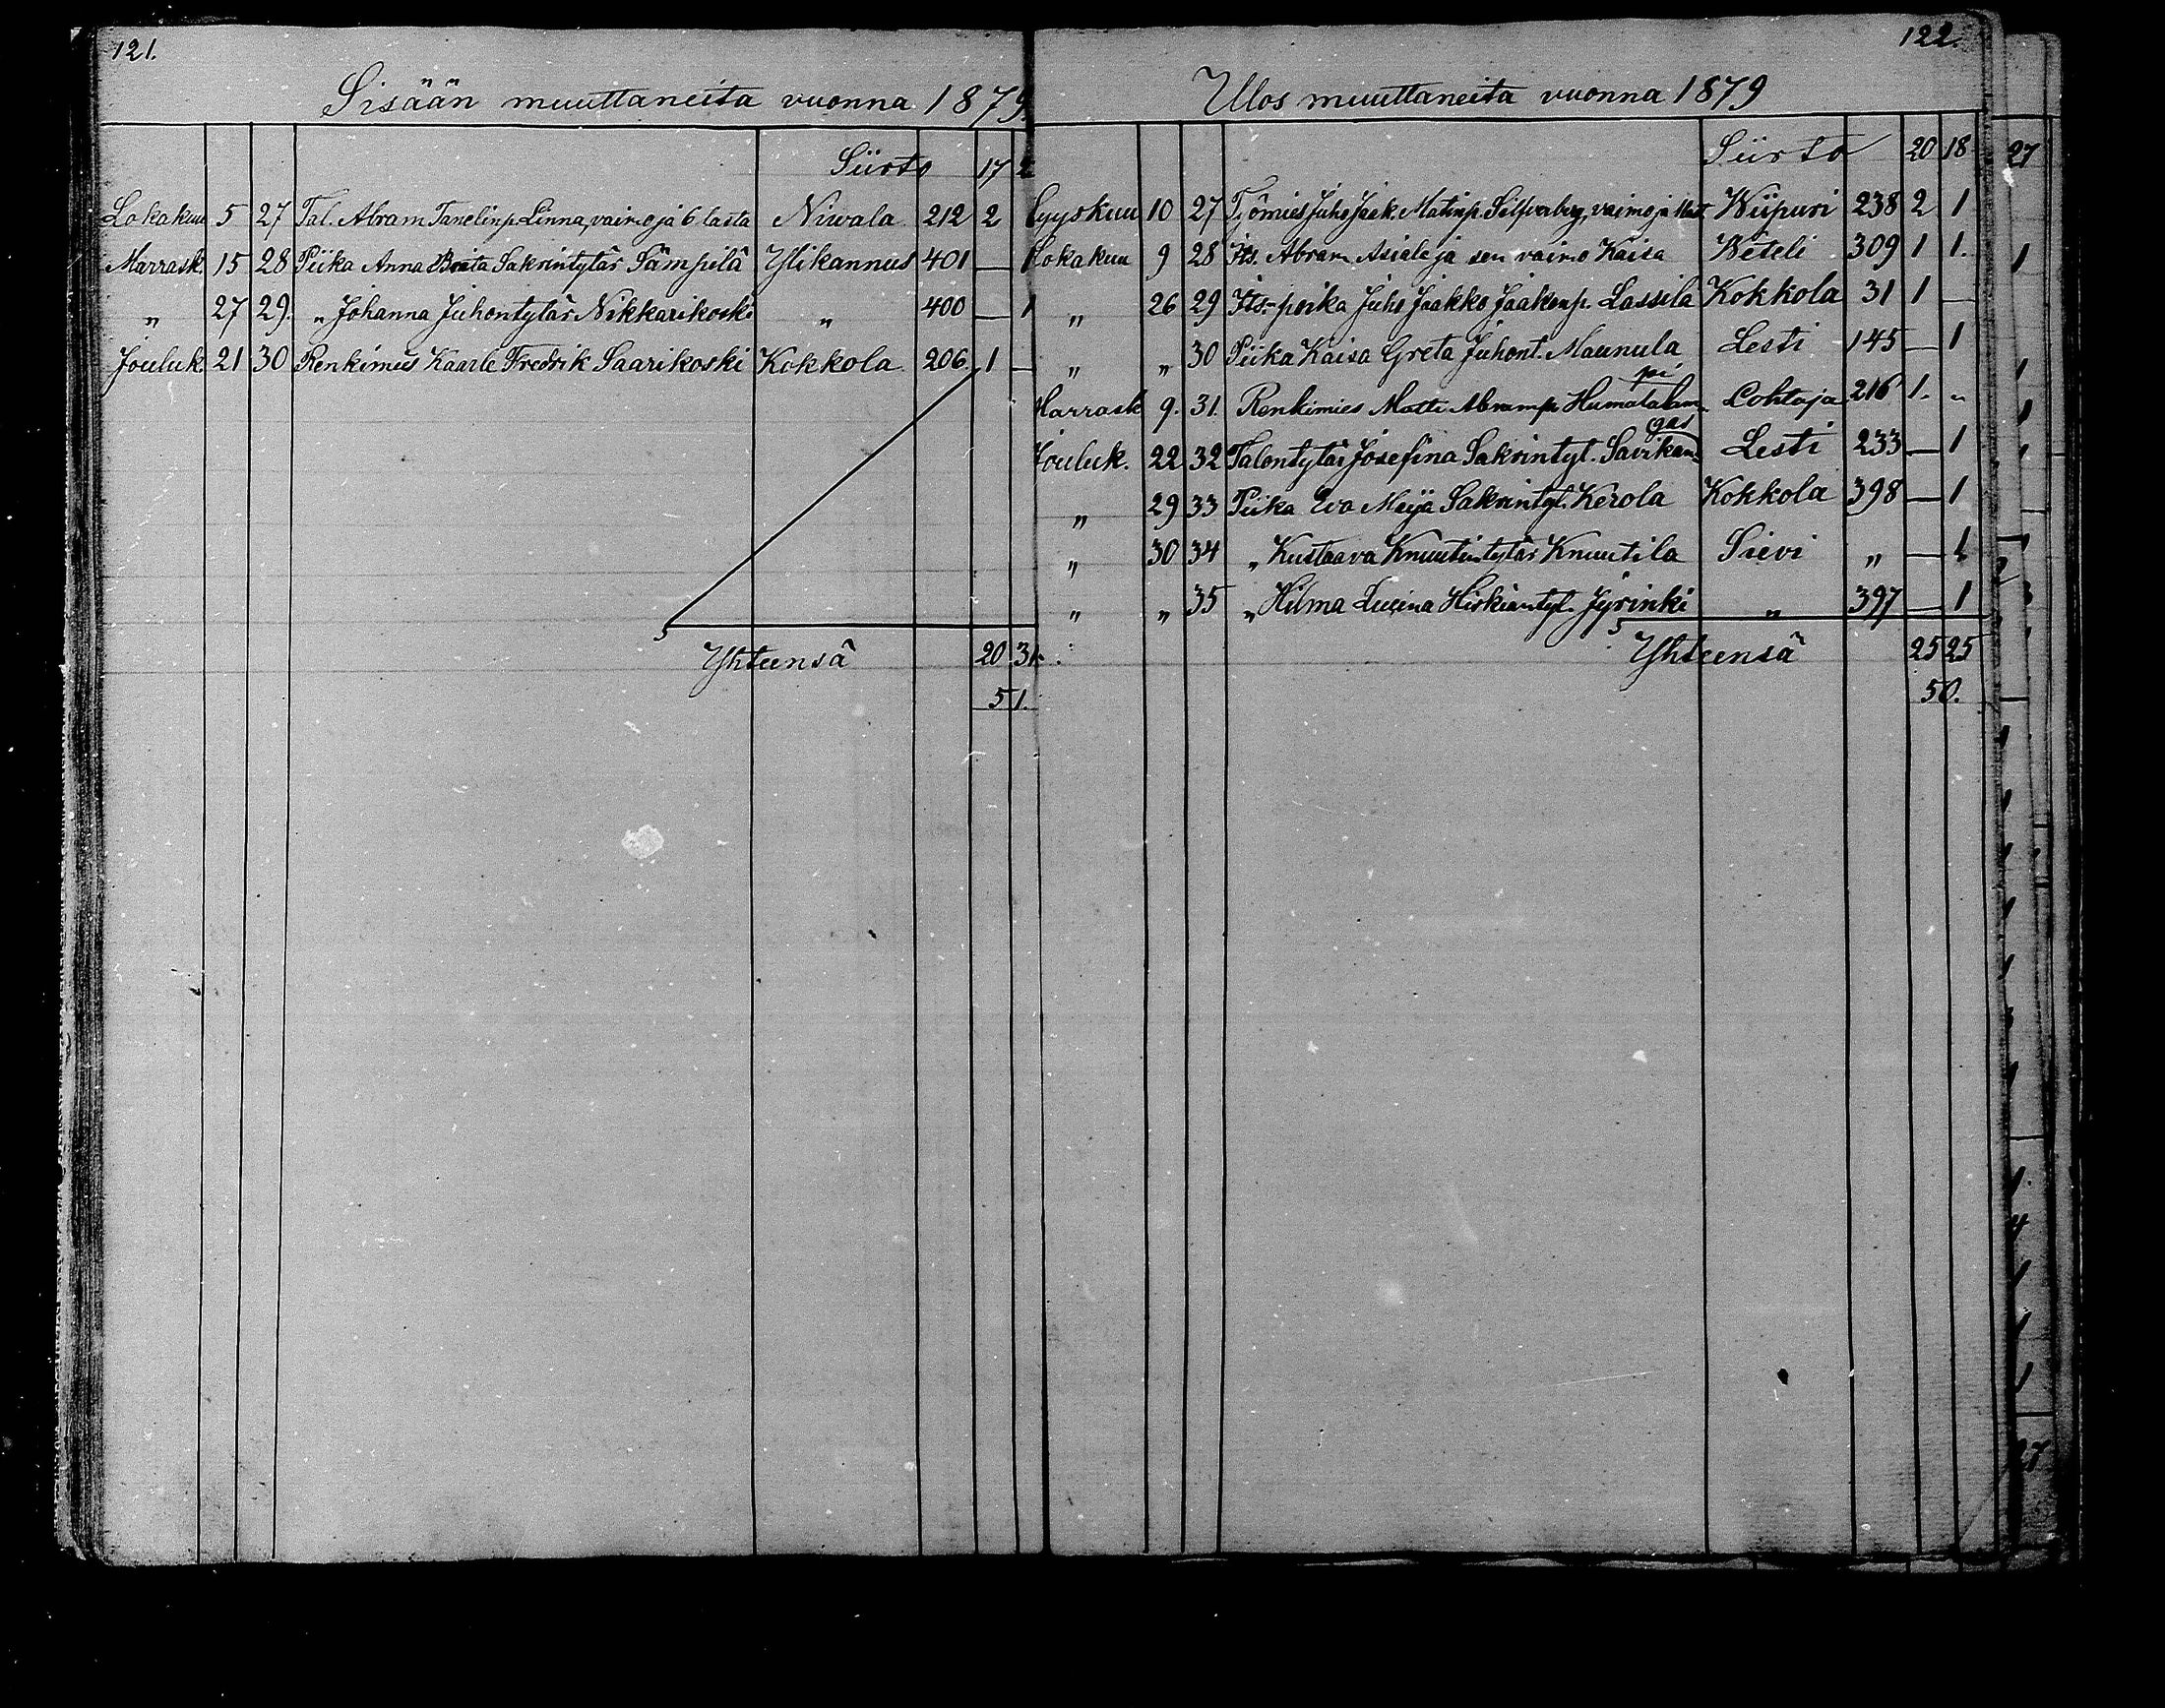 121.
Sisään muuttaneita vuonna 1879.
Siirto 17 2
Lokakuu 5 27 Tal. Abram Tanelinp. Linna, vaimo ja 6 lasta Niwala 212 2
Marrask. 15 28 Piika Anna Briita Sakrintytär Sämpilä Ylikannus 401 — 1
„ 27 29. „ Johanna Juhontytär Nikkarikoski „ 400 — 1
Jouluk. 21 30 Renkimies Kaarle Fredrik Saarikoski Kokkola. 206. 1 —
Yhteensä 20 31.
51.
122.
Ulos muuttaneita vuonna 1879
Siirto 20 18
Syyskuu 10 27 Työmies Juho Jaak. Matinp. Silfverberg, vaimo ja Wiipuri 238 2 1
Lokakuu 9 28 Its. Abram Asiala ja sen vaimo Kaisa Weteli 309 1 1.
„ 26 29 Its.-poika Juho Jaakko Jaakonp. Lassila Kokkola 31 1 —
„ „ 30 Piika Kaisa Greta Juhont. Maunula Lesti 145 — 1
Marrask 9. 31. Renkimies Matti Abramp. Humalalam- Lohtaja 216 1. „
pi
Jouluk. 22 32 Talontytär Josefina Sakrintyt. Savikan- Lesti 233 — 1
gas
„ 29 33 Piika Eva Maija Sakrintyt. Kerola Kokkola 398 — 1
„ 30 34 „ Kustaava Knuutintytär Knuutila Sievi „ — 1
„ „ 35 „ Hilma Hiskiantyt. Jyrinki „ 397 — 1
Yhteensä 25 25
50.
27